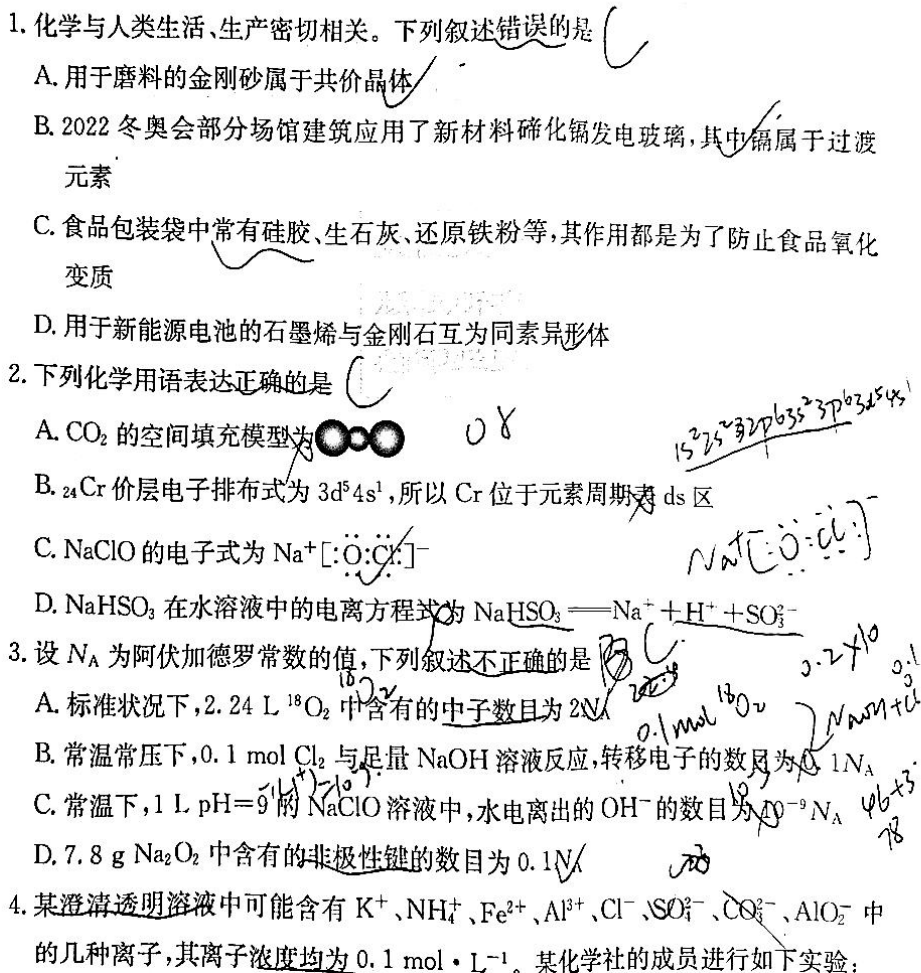 1. 化学与人类生活、生产密切相关。下列叙述错误的是 C
A. 用于磨料的金刚砂属于共价晶体
B. 2022 冬奥会部分场馆建筑应用了新材料碲化镉发电玻璃,其中镉属于过渡
元素
C. 食品包装袋中常有硅胶、生石灰、还原铁粉等,其作用都是为了防止食品氧化
变质
D. 用于新能源电池的石墨烯与金刚石互为同素异形体
2. 下列化学用语表达正确的是 C
A. CO₂ 的空间填充模型为
1s²2s²2p⁶3s²3p⁶3d⁵4s¹
B. ₂₄Cr 价层电子排布式为 3d⁵4s¹,所以 Cr 位于元素周期表 ds 区
C. NaClO 的电子式为 Na⁺[:Ö:Cl:]⁻
Na⁺[:Ö:Cl:]⁻
D. NaHSO₃ 在水溶液中的电离方程式为 NaHSO₃══Na⁺+H⁺+SO₃²⁻
3. 设 N_A 为阿伏加德罗常数的值,下列叙述不正确的是 C
0.2×10
A. 标准状况下,2.24 L ¹⁸O₂ 中含有的中子数目为 2N_A
0.1mol ¹⁸O₂
B. 常温常压下,0.1 mol Cl₂ 与足量 NaOH 溶液反应,转移电子的数目为 0.1N_A
C. 常温下,1 L pH=9 的 NaClO 溶液中,水电离出的 OH⁻ 的数目为 10⁻⁹N_A
46+3
78
D. 7.8 g Na₂O₂ 中含有的非极性键的数目为 0.1N_A
4. 某澄清透明溶液中可能含有 K⁺、NH₄⁺、Fe²⁺、Al³⁺、Cl⁻、SO₄²⁻、CO₃²⁻、AlO₂⁻ 中
的几种离子,其离子浓度均为 0.1 mol·L⁻¹。某化学社的成员进行如下实验: